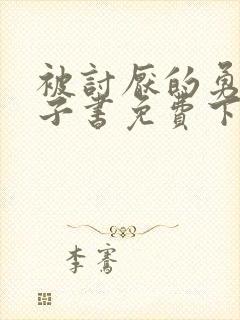 被討厭的勇
子書免費下
李騫